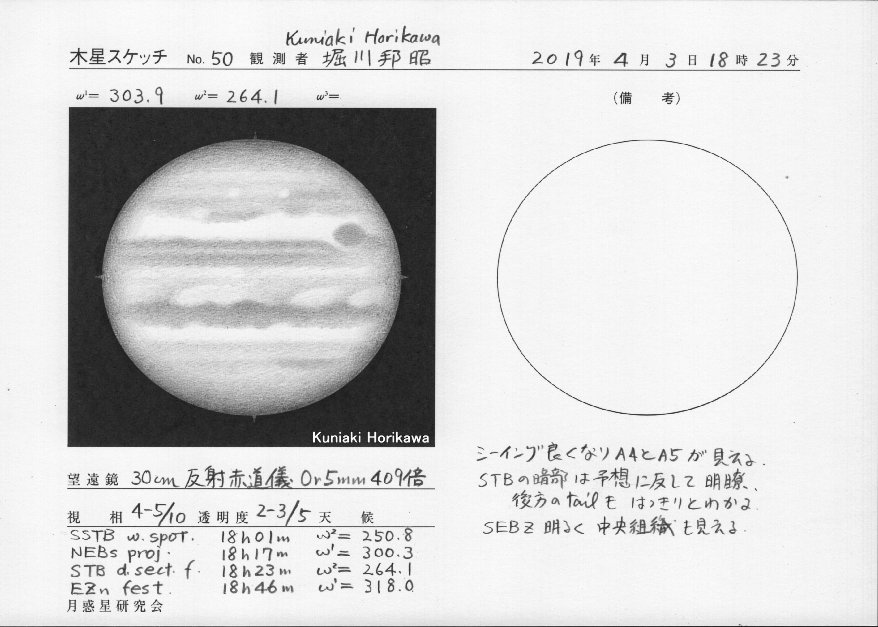 Kuniaki Horikawa
木星スケッチ No. 50 観測者 堀川邦昭 2019年 4月 3日 18時 23分
ω¹= 303.9 ω²= 264.1 ω³=
(備 考)
Kuniaki Horikawa
望遠鏡 30cm 反射赤道儀 Or5mm 409倍
視 相 4-5/10 透明度 2-3/5 天 候
SSTB w. spot. 18h01m ω²= 250.8
NEBs proj. 18h17m ω¹= 300.3
STB d. sect. f. 18h23m ω²= 264.1
EZn fest. 18h46m ω¹= 318.0
月惑星研究会
シーイング良くなりA4とA5が見える.
STBの暗部は予想に反して明瞭、
後方のtailもはっきりとわかる
SEBZ 明るく中央組織も見える.